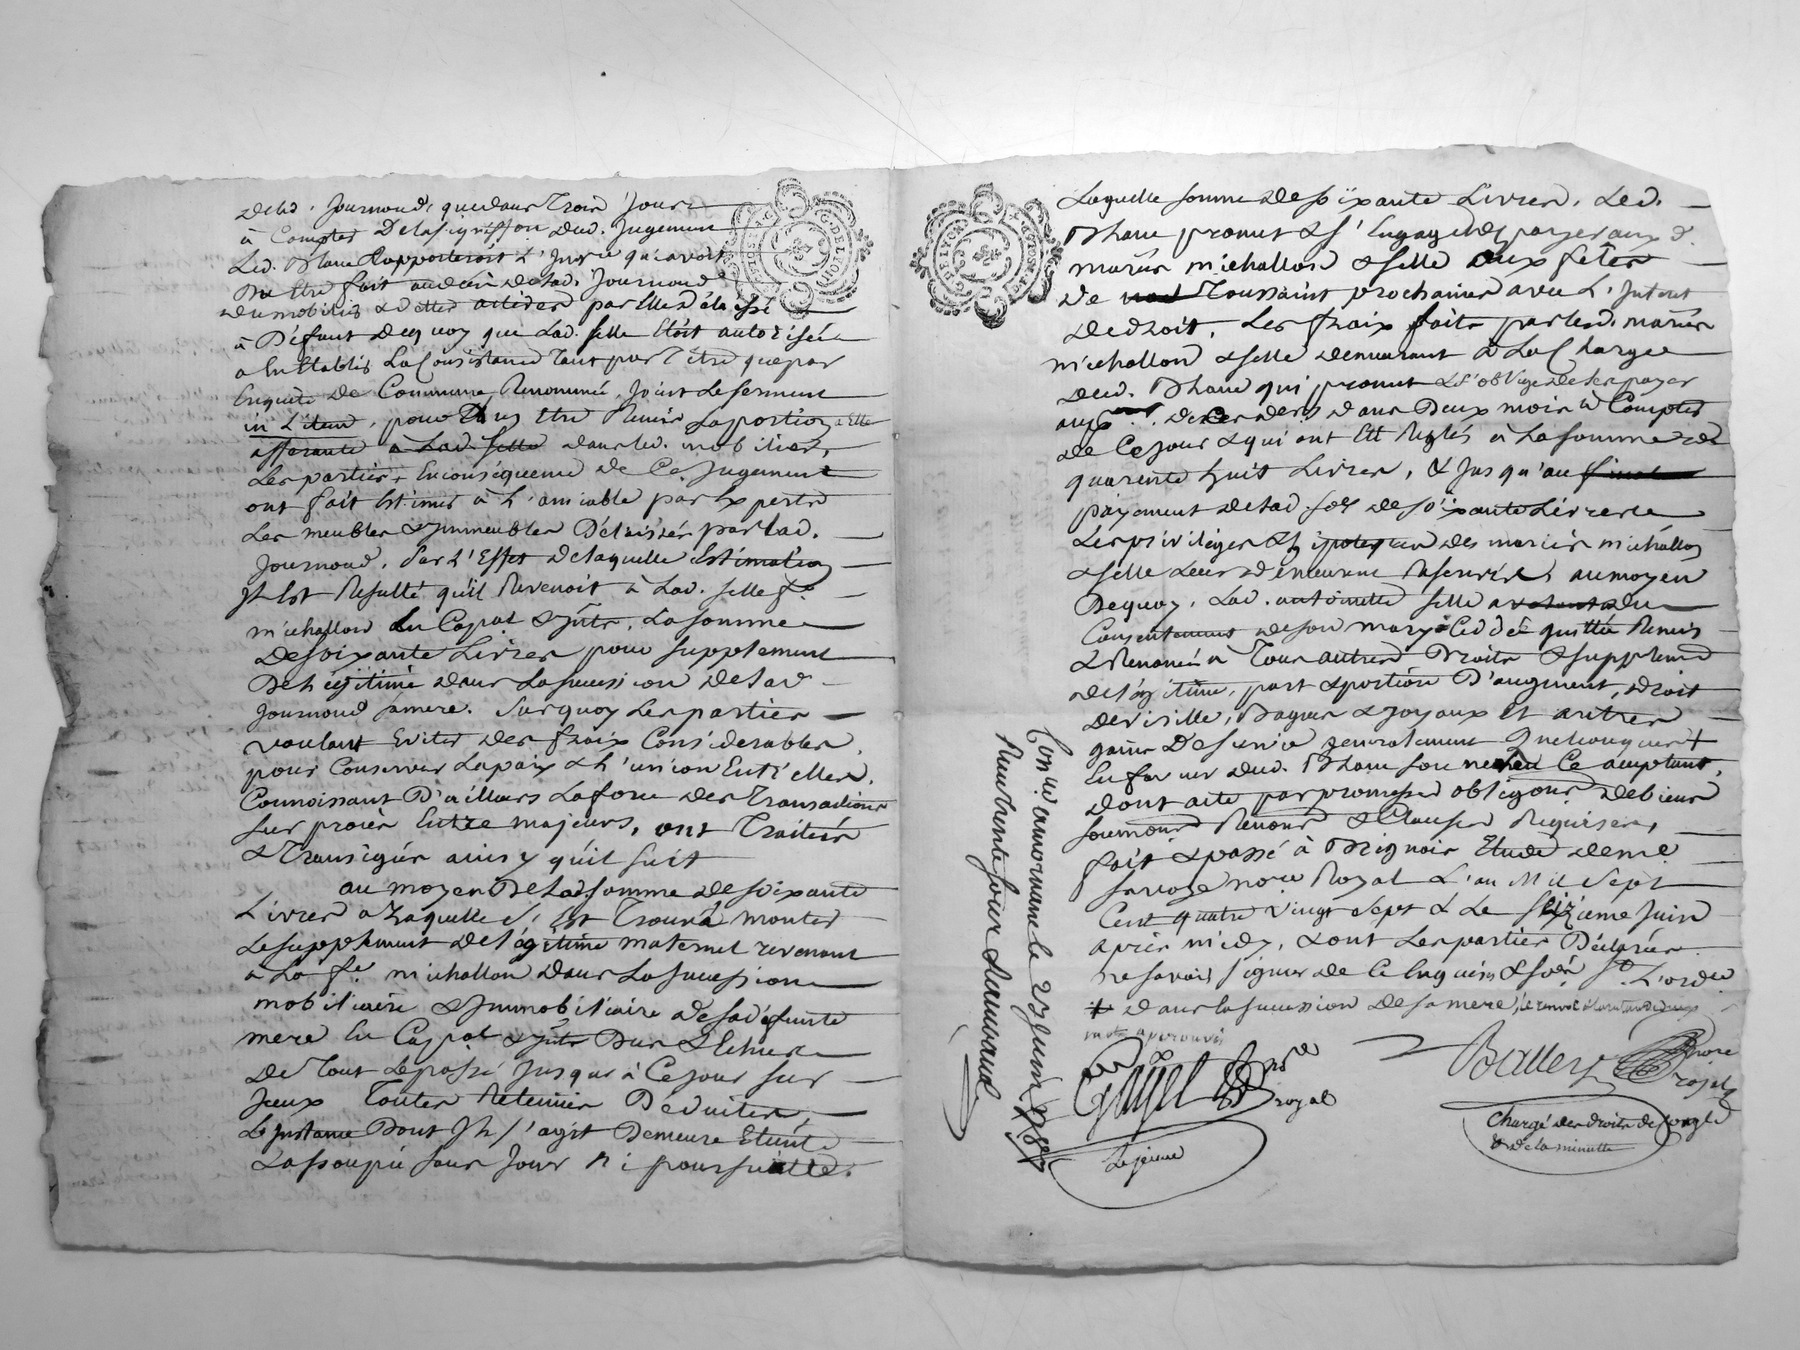 de lad. Journoud, que dans Trois Jours
à Compter De la signiffon dud. Jugement
Led. Blanc Rapporteroit L'Invre qui avoit
Du Etre fait au décès de lad. Journoud
du mobilier & dettes actives par Elle délaissé
à Défaut de quoy que Lad. selle étoit autorisée
a En Etablir La Consistance Tant par Titre que par
Enquete De Commune Renommé, Joint Le serment
in Litem, pour En Etre Remis La portion a Elle
afferante a Lad. selle dans led. mobilier,
Les parties En conséquence de Ce Jugement
ont fait Estimer à L'amiable par Experts
Les meubles & Immeubles Délaissés par lad.
Journoud, Par L'Effet de laquelle Estimation
Il Est Resulté qu'il Revenoit à Lad. selle fe
michallon En Capal & Ints, La somme
De soixante Livres pour supplement
De Légitime dans La succession de lad
Journoud sa mere. Sur quoy Les parties
voulant Eviter des fraix Considerables,
pour Conserver La paix & L'union Entr'elles,
Connoissant D'ailleurs La force des Transactions
sur procès Entre majeurs, ont Traités
& Transigés ainsy qu'il suit
au moyen De Lad somme de soixante
Livres a Laquelle s'Est Trouvé monter
Le supplement de Légitime maternel revenant
a La fe michallon dans La succession
mobiliaire & Immobiliaire de sa défunte
mere En Capal & Ints Dus & Echus
De Tout Le passé Jusques à Ce jour sur
Iceux Toutes Retenues Déduites,
L'Instance Dont Il s'agit Demeure Eteinte
& assoupie sans Jour ni poursuitte.
Laquelle somme de soixante Livres, Led.
Blanc promet & s'Engage de payer aux d.
mariés michallon & selle aux fêtes
De Toussaint prochaines avec L'Interet
de droit, Les fraix faits par lesd. mariés
michallon & selle demeurant à La Charge
dud. Blanc qui promet & s'oblige de les payer
aux d. dans Deux mois à Compter
de Ce jour & qui ont Eté Reglés à La somme de
quarente huit Livres, & Jusqu'au
payement de lad. soe de soixante Livres
Les privileges & hipoteques des mariés michallon
& selle Leur demeurent Reservés, au moyen
De quoy, Lad. antoinette selle du
Consentement de son mary a Ceddé quitté Remis
& Renoncé à Tous autres Droits & supplement
de Légitime, part & portion D'augment, droit
de virille, Bagues & Joyaux Et autres
gains De survie generalement Quelconques +
En faveur dud. Blanc son neveu Ce acceptant,
dont acte par promesses obligons de biens
soumons Renons & Clauses Requises,
fait & passé à Brignais Etude de me
nore Royal L'an Mil Sept
Cent quatre vingt Sept & Le seizieme Juin
après midy, & ont Les parties Déclarés
ne savoir signer de Ce Enquises & soés st. L'ordce
+ dans la succession de sa mere, Le renvoi
mots aprouvés
Gayet
nre
royal
Bailly
nore
royal
Chargé des droits de Conle
& de la minutte
Lejeune
Con. le 23 Juin 1787
Reçu trente sous